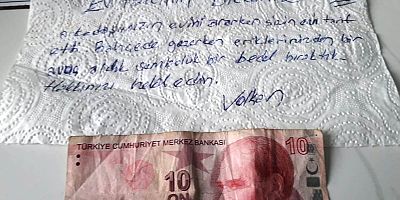 Ev
arkadaşınızın evini ararken sizin evi tarif
etti. Bahçede gezerken eriklerinizden bir
avuç aldık şimdilik bir bedel bıraktık.
Hakkınızı helal edin.
Volkan
TÜRKİYE CUMHURİYET MERKEZ BANKASI
10
10
ON